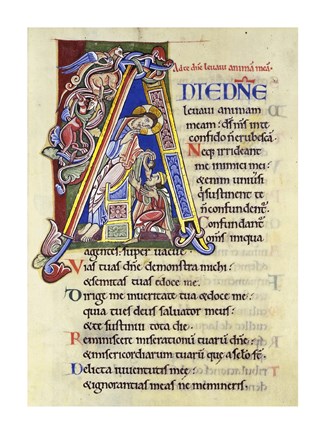 Ad te dñe levavi animā meā.
A DTE DÑE
levavi animam
meam: ds̄ ms̄ in te
confido n̄ erubescā.
Neq; irrideant
me inimici mei:
& enim univsi
q̇ sustinent te
n̄ confundent̃.
Confundant̃
om̃s iniqua
agentes: super vacue.
Vias tuas dñe demonstra michi:
& semitas tuas edoce me.
Dirige me in veritate tua & doce me:
quia tu es deus salvator meus:
& te sustinui tota die.
Reminiscere miserationū tuarū dñe:
& misericordiarum tuarū que a sclo st̃.
Delicta iuventutis mee:
& ignorantias meas ne memineris.